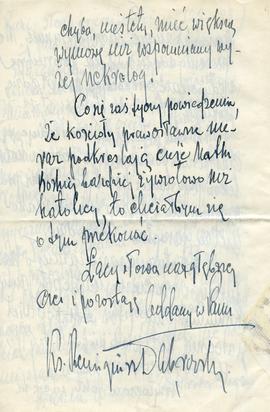 chyba, niestety, mieć większą
wymowę niż wspomniany wy-
żej nekrolog.
Co się zaś tyczy powiedzenia,
że kościoły prawosławne nie-
raz podkreślają cześć Matki
Boskiej bardziej żywiołowo niż
katolicy, to chciałbym się
o tym przekonać.
Łączę słowa najgłębszej
czci i pozostaję oddany w Panu
Ks.